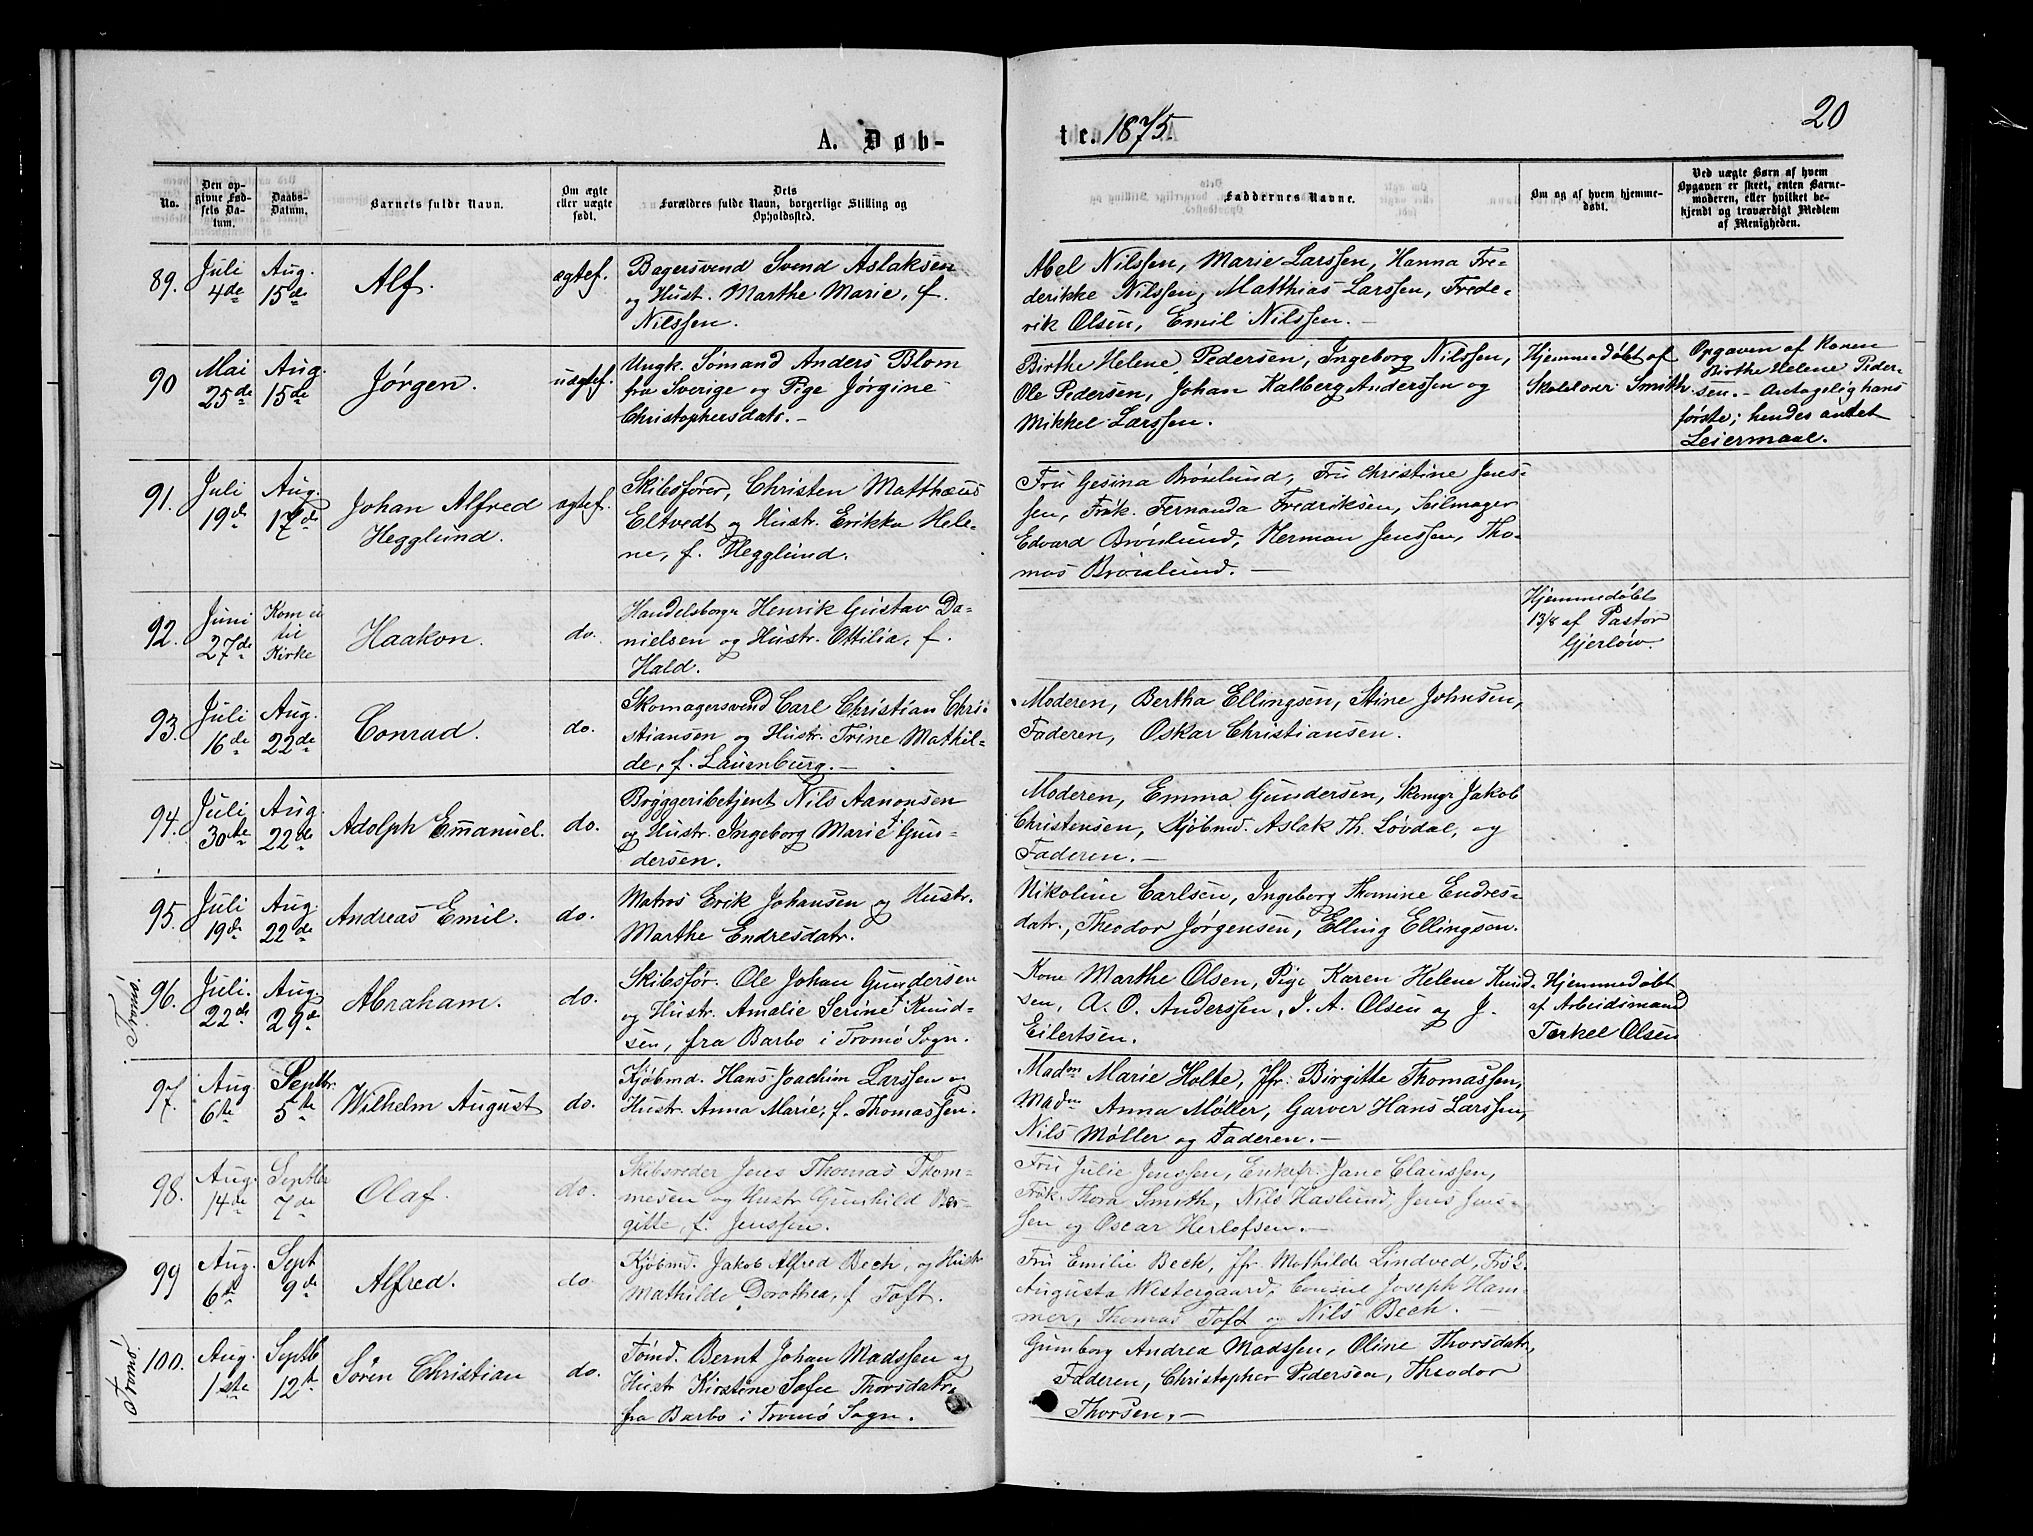 20
A. Døb-
te. 1875.
No.
Den op-
givne Fød-
sels Da-
tum.
Daabs-
Datum.
Barnets fulde Navn.
Om ægte
eller uægte
født.
Dets
Forældres fulde Navn, borgerlige Stilling og
Opholdssted.
Faddernes Navne.
Om og af hvem hjemme-
døbt.
Ved uægte Børn af hvem
Opgaven er skeet, enten Barne-
moderen, eller hvilket be-
kjendt og troværdigt Medlem
af Menigheden.
89.
Juli
4de
Aug.
15de
Alf.
ægtef.
Bagersvend Svend Aslaksen
og Hust. Marthe Marie, f.
Nilssen.
Abel Nilssen, Marie Larssen, Hanna Fre-
derikke Nilssen, Matthias Larssen, Frede-
rik Olsen, Emil Nilssen.
90
Mai
25de
Aug.
15de
Jørgen.
uægtef.
Ungk. Sømand Anders Blom
fra Sverige og Pige Jørgine
Christophersdatr. -
Birthe Helene Pedersen, Ingeborg Nilssen,
Ole Pedersen, Johan Kalberg Anderssen og
Mikkel Larssen.
Hjemmedøbt af
Skolelærer Smith.
Opgaven af Konen
Birthe Helene Peder-
sen. - Antagelig hans
første; hendes andet
Leiermaal.
91.
Juli
19de
Aug.
17de
Johan Alfred
Hegglund.
ægtef.
Skibsfører, Christen Matthæus
Eltvedt og Hustr. Erikka Hele-
ne, f. Hegglund.
Fru Gesina Brönlund, Fru Christine Jens-
sen, Frøk. Fernanda Fredriksen, Seilmager
Edvard Brönlund, Herman Jenssen, Tho-
mas Brönlund. -
92.
Juni
27de
Kom ei
til
Kirke
Haakon.
do.
Handelsborgr Henrik Gustav Da-
nielsen og Hustr. Ottilia, f.
Hald.
Hjemmedøbt
13/8 af Pastor
Gjerløw.
93.
Juli
16de
Aug.
22de
Conrad.
do.
Skomagersvend Carl Christian Chri-
stiansen og Hustr. Trine Mathil-
de, f. Lauenburg. -
Moderen, Bertha Ellingsen, Stine Johnsen,
Faderen, Oskar Christiansen.
94.
Juli
30te
Aug.
22de
Adolph Emanuel.
do.
Bryggeribetjent Nils Aanonsen
og Hustr. Ingeborg Marie f. Gun-
dersen.
Moderen, Emma Gundersen, Skomgr Jakob
Christensen, Kjøbmd. Aslak Th. Løvdal, og
Faderen. -
95.
Juli
19de
Aug.
22de
Andreas Emil.
do.
Matros Erik Johansen og Hustr.
Marthe Endresdatr.
Nikoline Carlsen, Ingeborg Thomine Endres-
datr., Theodor Jørgensen, Elling Ellingsen.
Tromø.
96.
Juli.
22de
Aug.
29de
Abraham.
do.
Skibsfør. Ole Johan Gundersen
og Hustr. Amalie Serine f. Knud-
sen, fra Barbo i Tromø Sogn.
Kone Marthe Olsen, Pige Karen Helene Knud-
sen, A. O. Anderssen, I. A. Olsen og J.
Eilertsen.
Hjemmedøbt
af Arbeidsmand
Terkel Olsen
97.
Aug.
6te
Septbr.
5te
Wilhelm August
do.
Kjøbmd. Hans Joachim Larssen og
Hustr. Anna Marie, f. Thomassen.
Madm Marie Holte, Jfr. Birgitte Thomassen,
Madm Anna Møller, Garver Hans Larssen,
Nils Møller og Faderen. -
98.
Aug.
14de
Septbr
7de
Olaf.
do.
Skibsreder Jens Thomas Thom-
mesen og Hustr Gunhild Ber-
gitte, f. Jenssen.
Fru Julie Jenssen, Enkefr. Jane Claussen,
Frøk. Thora Smith, Nils Haslund, Jens Jens-
sen og Oscar Herlofsen. -
99
Aug.
6te
Sept
9de
Alfred.
do.
Kjøbmd. Jakob Alfred Bech, og Hustr
Mathilde Dorothea, f. Toft.
Fru Emilie Beck, Jfr. Mathilde Lindved, Frøk.
Augusta Westergaard, Consul Joseph Ham-
mer, Thomas Toft og Nils Bech. -
Tromø.
100.
Aug.
1ste
Septb
12te
Søren Christian
do.
Tømd. Bernt Johan Madssen og
Hustr Kirstine Sofie Thorsdatr,
fra Barbo i Tromø Sogn.
Gunborg Andrea Madssen, Oline Thorsdatr,
Faderen, Christopher Pedersen, Theodor
Thorsen. -